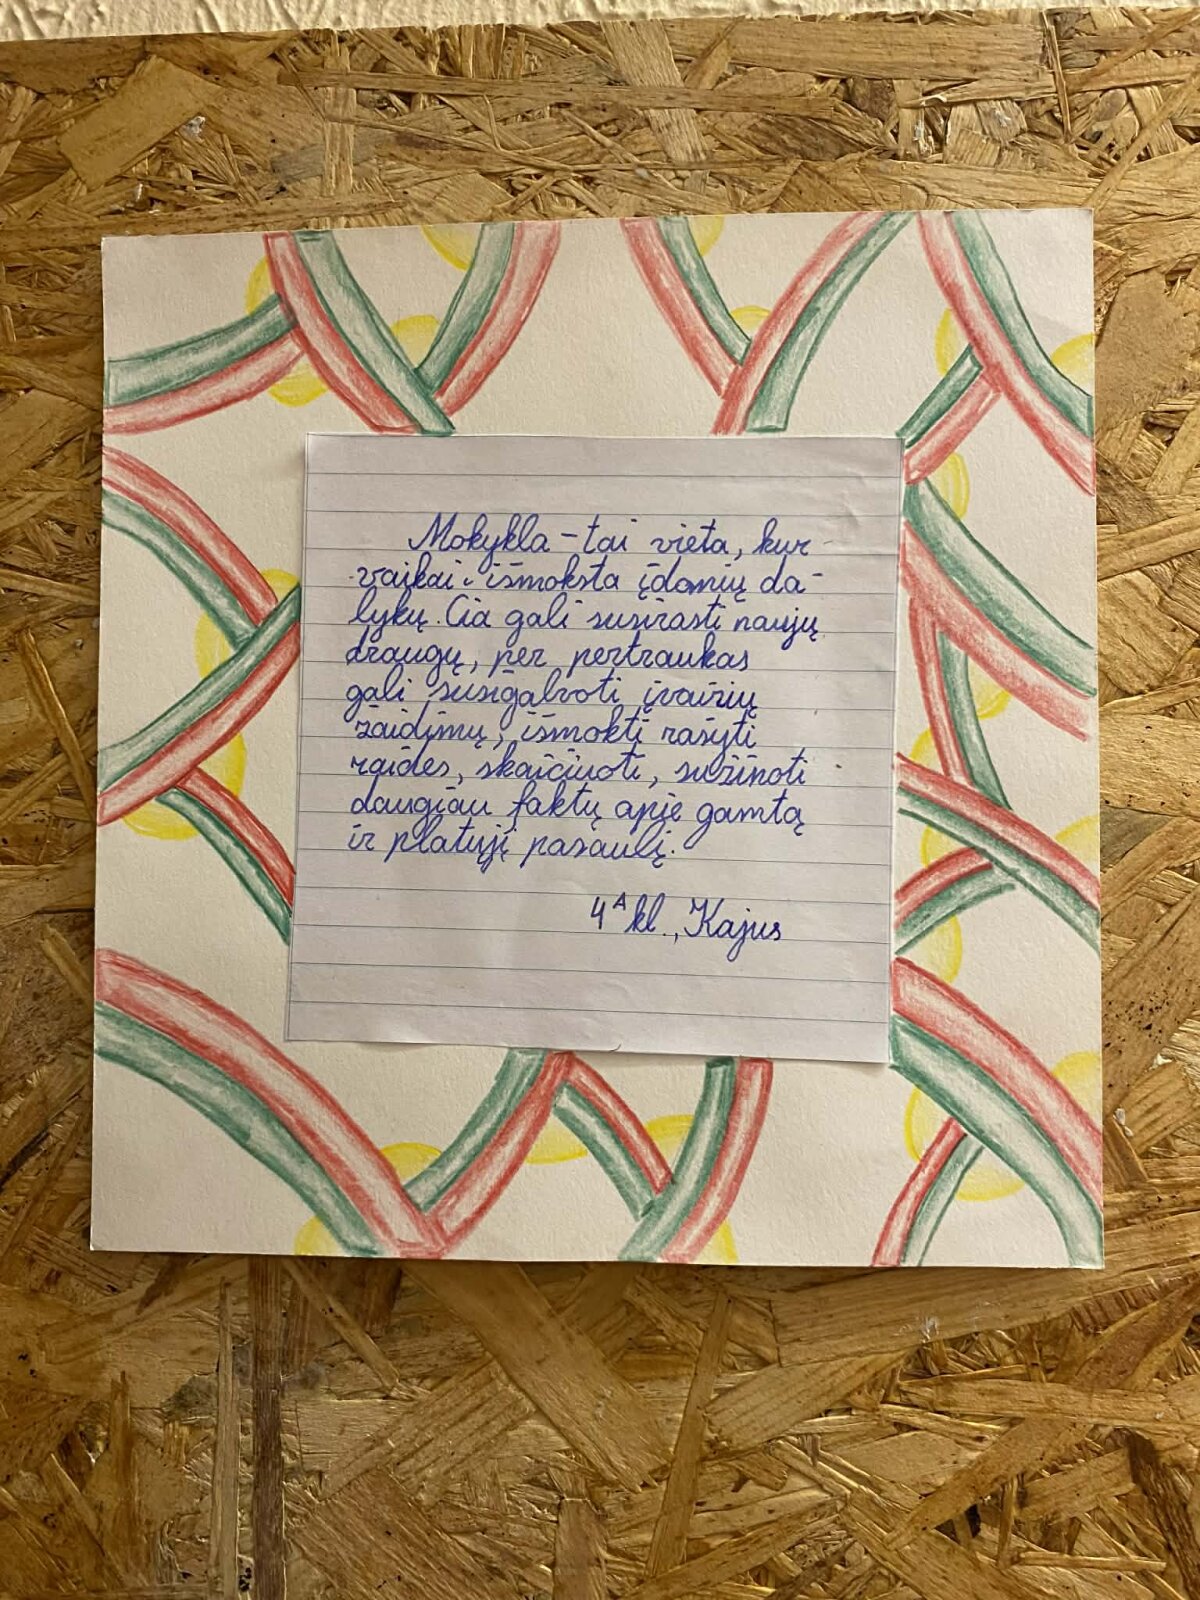 Mokykla - tai vieta, kur
vaikai išmoksta įdomių da-
lykų. Čia gali susirasti naujų
draugų, per pertraukas
gali susigalvoti įvairių
žaidimų, išmokti rašyti
raides, skaičiuoti, sužinoti
daugiau faktų apie gamtą
ir platųjį pasaulį.
4ᴬ kl., Kajus